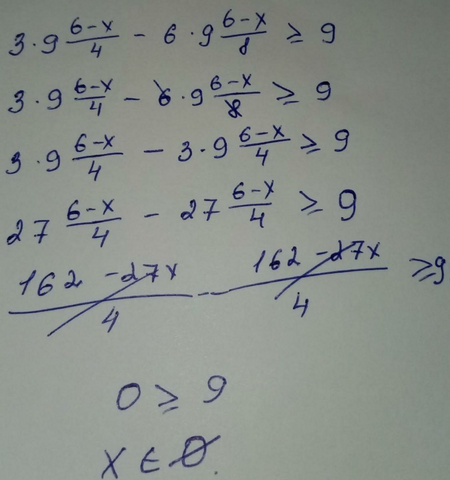 3 · 9 (6-x)/4 - 6 · 9 (6-x)/8 ≥ 9
3 · 9 (6-x)/4 - 6 · 9 (6-x)/8 ≥ 9
3 · 9 (6-x)/4 - 3 · 9 (6-x)/4 ≥ 9
27 (6-x)/4 - 27 (6-x)/4 ≥ 9
(162 - 27x)/4 - (162 - 27x)/4 ≥ 9
0 ≥ 9
x ∈ Ø.